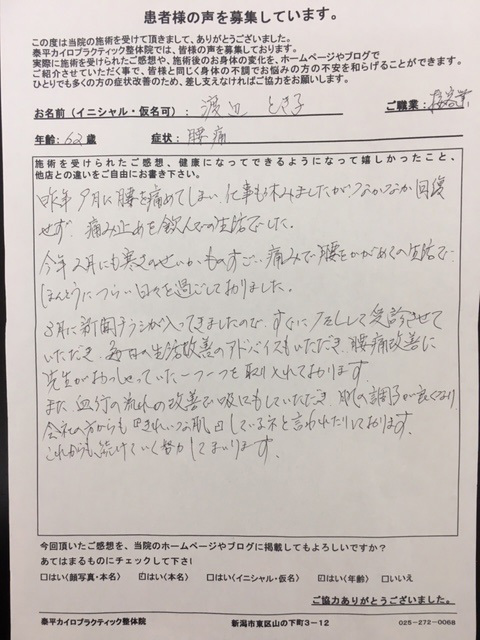 患者様の声を募集しています。
この度は当院の施術を受けて頂きまして、ありがとうございました。
泰平カイロプラクティック整体院では、皆様の声を募集しております。
実際に施術を受けられたご感想や、施術後のお身体の変化を、ホームページやブログで
ご紹介させていただく事で、皆様と同じく身体の不調でお悩みの方の不安を和らげることができます。
ひとりでも多くの方の症状改善のため、差し支えなければご協力をお願いします。
お名前(イニシャル・仮名可):渡辺 とき子 ご職業:接客業
年齢:62歳 症状:腰痛
施術を受けられたご感想、健康になってできるようになって嬉しかったこと、
他店との違いをご自由にお書き下さい。
昨年9月に腰を痛めてしまい、仕事も休みましたが、なかなか回復
せず、痛み止めを飲んでの生活でした。
今年2月にも寒さのせいか、ものすごい痛みで腰をかがめての生活で
ほんとうにつらい日々を過ごしておりました。
3月に新聞チラシが入ってきましたので、すぐに して受診させて
いただき、毎日の生活改善のアドバイスもいただき、腰痛改善に
先生がおっしゃっていた一つ一つを取り入れております。
また、血行の流れの改善で もしていただき、肌の調子が良くなり
会社の方からも『きれいな肌』しているネと言われたりしております。
これからも、続けていく努力してまいります。
今回頂いたご感想を、当院のホームページやブログに掲載してもよろしいですか?
あてはまるものにチェックして下さい!
□はい(顔写真・本名) ☑はい(本名) □はい(イニシャル・仮名) ☑はい(年齢) □いいえ
ご協力ありがとうございました。
泰平カイロプラクティック整体院 新潟市東区山の下町3-12 025-272-0068